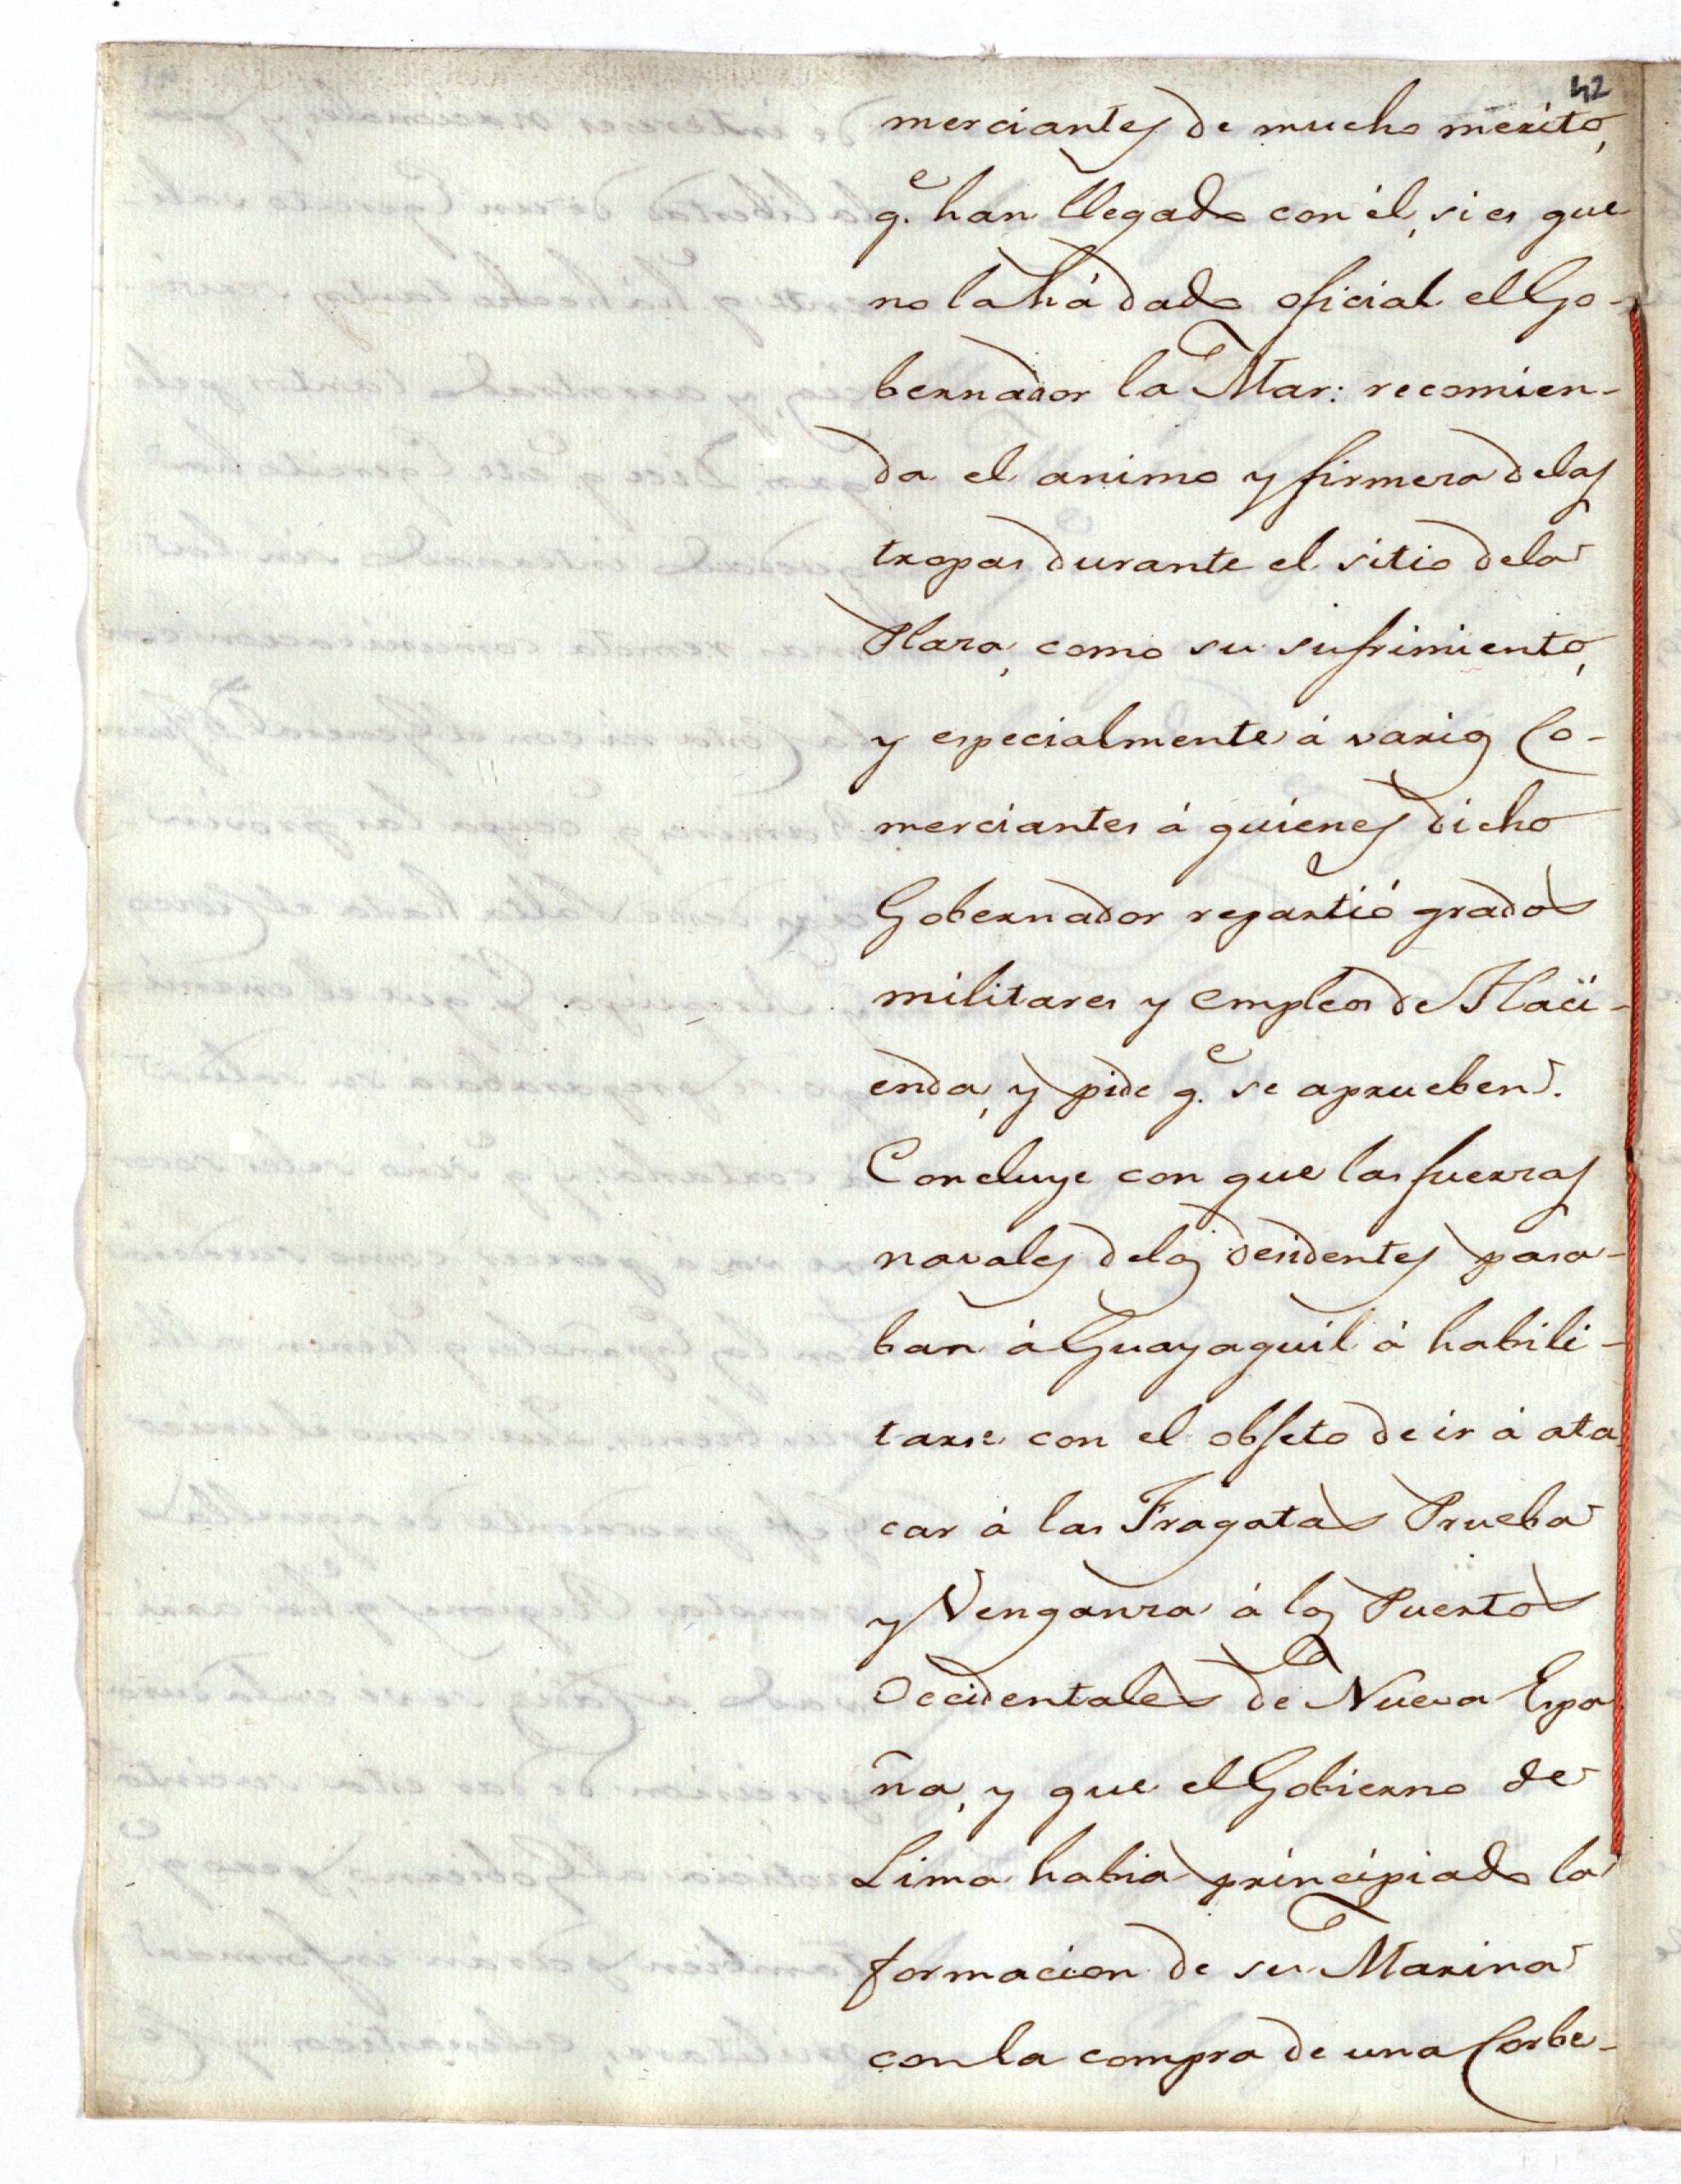 42
merciantes de mucho merito,
q.e han llegado con él, si es que
no la há dado oficial el Go-
bernador la Mar: recomien-
da el animo y firmeza delas
tropas durante el sitio dela
Plaza, como su sufrimiento,
y especialmente á varios Co-
merciantes á quienes dicho
Gobernador repartió grados
militares y empleos de Haci-
enda, y pide q.e se aprueben.
Concluye con que las fuerzas
navales delos desidentes pasa-
ban á Guayaquil á habili-
tarse con el objeto de ir á ata
car á las Fragatas Prueba
y Venganza á los Puertos
Occidentales de Nueva Espa
ña, y que el Gobierno de
Lima habia principiado la
formacion de su Marina
con la compra de una Corbe-